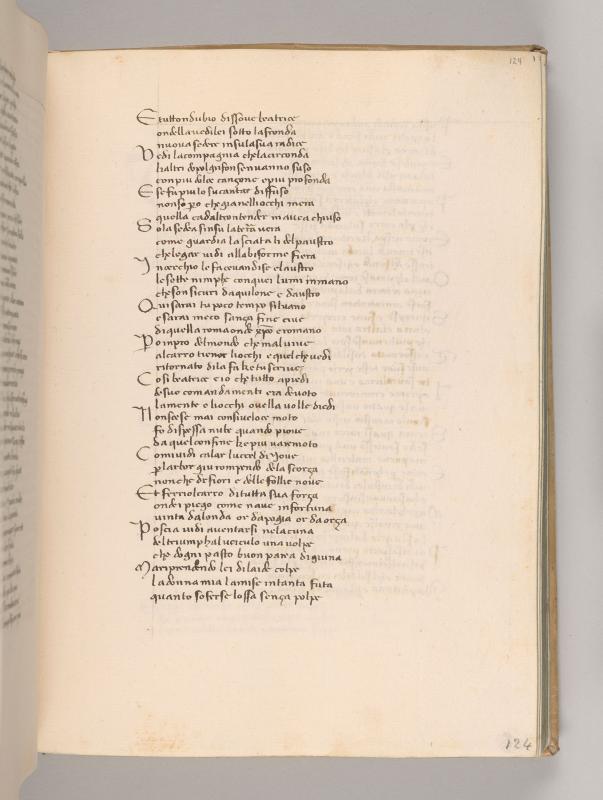 124
E tutto ndubio dissove beatrice
ondella vedi lei sotto lafronda
nuova sedere insulasua radice
Vedi lacompagnia chelacirconda
lialtri dopolgrifonsenvanno suso
conpiu dolce cançone epiu profonda
E sefupiulo sucantar diffuso
nonso pero chegianelliocchi mera
quella cadaltrontender mavea chiuso
Sola sedea sinsu laterra vera
come guardia lasciata li delpaustro
chelegar vidi allabiforme fiera
In cerchio lefacevandise claustro
lesette nimphe conquei lumi inmano
cheson sicuri daquilone e daustro
Qui sarai tu poco tempo silvano
esarai meco sança fine cive
diquella roma onde xpo eromano
Poinpro delmondo chemalvive
alcarro tienor liocchi equelchevedi
ritornato dila fa ketu scrive
Cosi beatrice eio chetutto apiedi
desuo comandamenti era devoto
lamente eliocchi ovella volle diedi
Nonscese mai consiveloce moto
fo dispessa nube quando piove
da quelconfine kepiu varemoto
Comividi calar luccel diJove
perlarbor giu rompendo dela scorça
nonche defiori e delle follie nove
Et ferriolcarro ditutta sua força
ondei piego come nave infortuna
vinta dalonda or dapogia or da orça
Poscia vidi aventarsi nelacuna
deltriumphal veiculo una volpe
che dogni pasto buon parea digiuna
Mariprendendo lei dilaide colpe
ladonna mia lamise intanta futa
quanto soferse lossa sença polpe
124